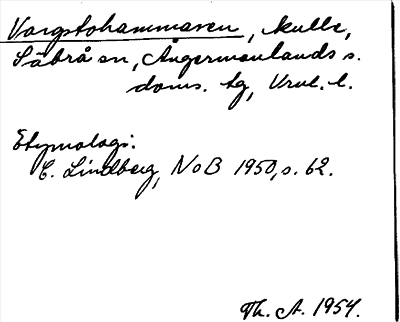 Vargstohammaren, kulle,
Säbrå sn, Ångermanlands s.
doms. tg, Vrnl. l.
Etymologi:
C. Lindberg, NoB 1950, s. 62.
Th. A. 1954.